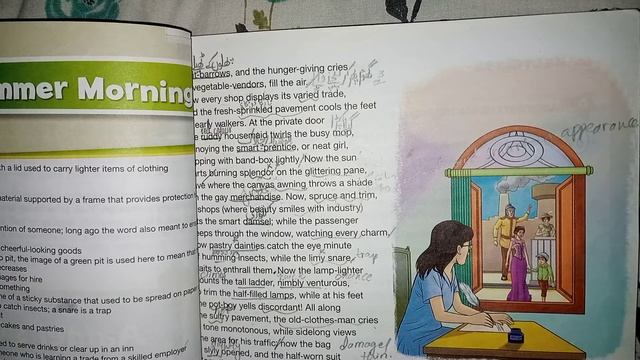 mmer Morning
h a lid used to carry lighter items of clothing
aterial supported by a frame that provides protection
ention of someone; long ago the word also meant to
cheerful-looking goods
pit, the image of a green pit is used here to mean that
creases
ages for hire
omething
e of a sticky substance that used to be spread on
t, a snare is a trap
cakes and pastries
ed to serve drinks or clear up in an inn
eone who is learning a trade from a skilled employer
r-barrows, and the hunger-giving cries
vegetable-vendors, fill the air.
w every shop displays its varied trade,
d the fresh-sprinkled pavement cools the feet
early walkers. At the private door
e ruddy housemaid twirls the busy mop,
noying the smart 'prentice, or neat girl,
pping with band-box lightly. Now the sun
rts burning splendor on the glittering pane,
ve where the canvas awning throws a shade
the gay merchandise. Now, spruce and trim,
shops (where beauty smiles with industry)
s the smart damsel; while the passenger
eeps through the window, watching every charm,
ow pastry dainties catch the eye minute
humming insects, while the limy snare
aits to enthrall them. Now the lamp-lighter
ounts the tall ladder, nimbly venturous,
trim the half-filled lamps, while at his feet
e pot-boy yells discordant! All along
e sultry pavement, the old-clothes-man cries
tone monotonous, while sidelong views
e area for his traffic: now the bag
slyly opened, and the half-worn suit
appearance
trap
damage